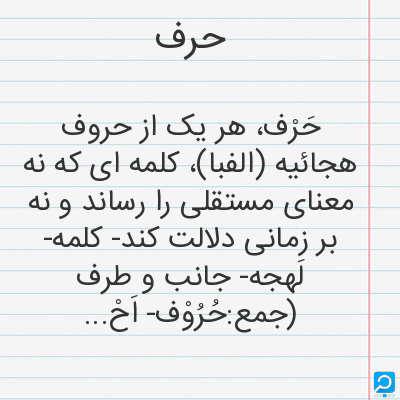 حرف
حَرْف، هر یک از حروف
هجائیه (الفبا)، کلمه ای که نه
معنای مستقلی را رساند و نه
بر زمانی دلالت کند- کلمه-
لَهجه- جانب و طرف
(جمع:حُرُوْف- اَحْ...